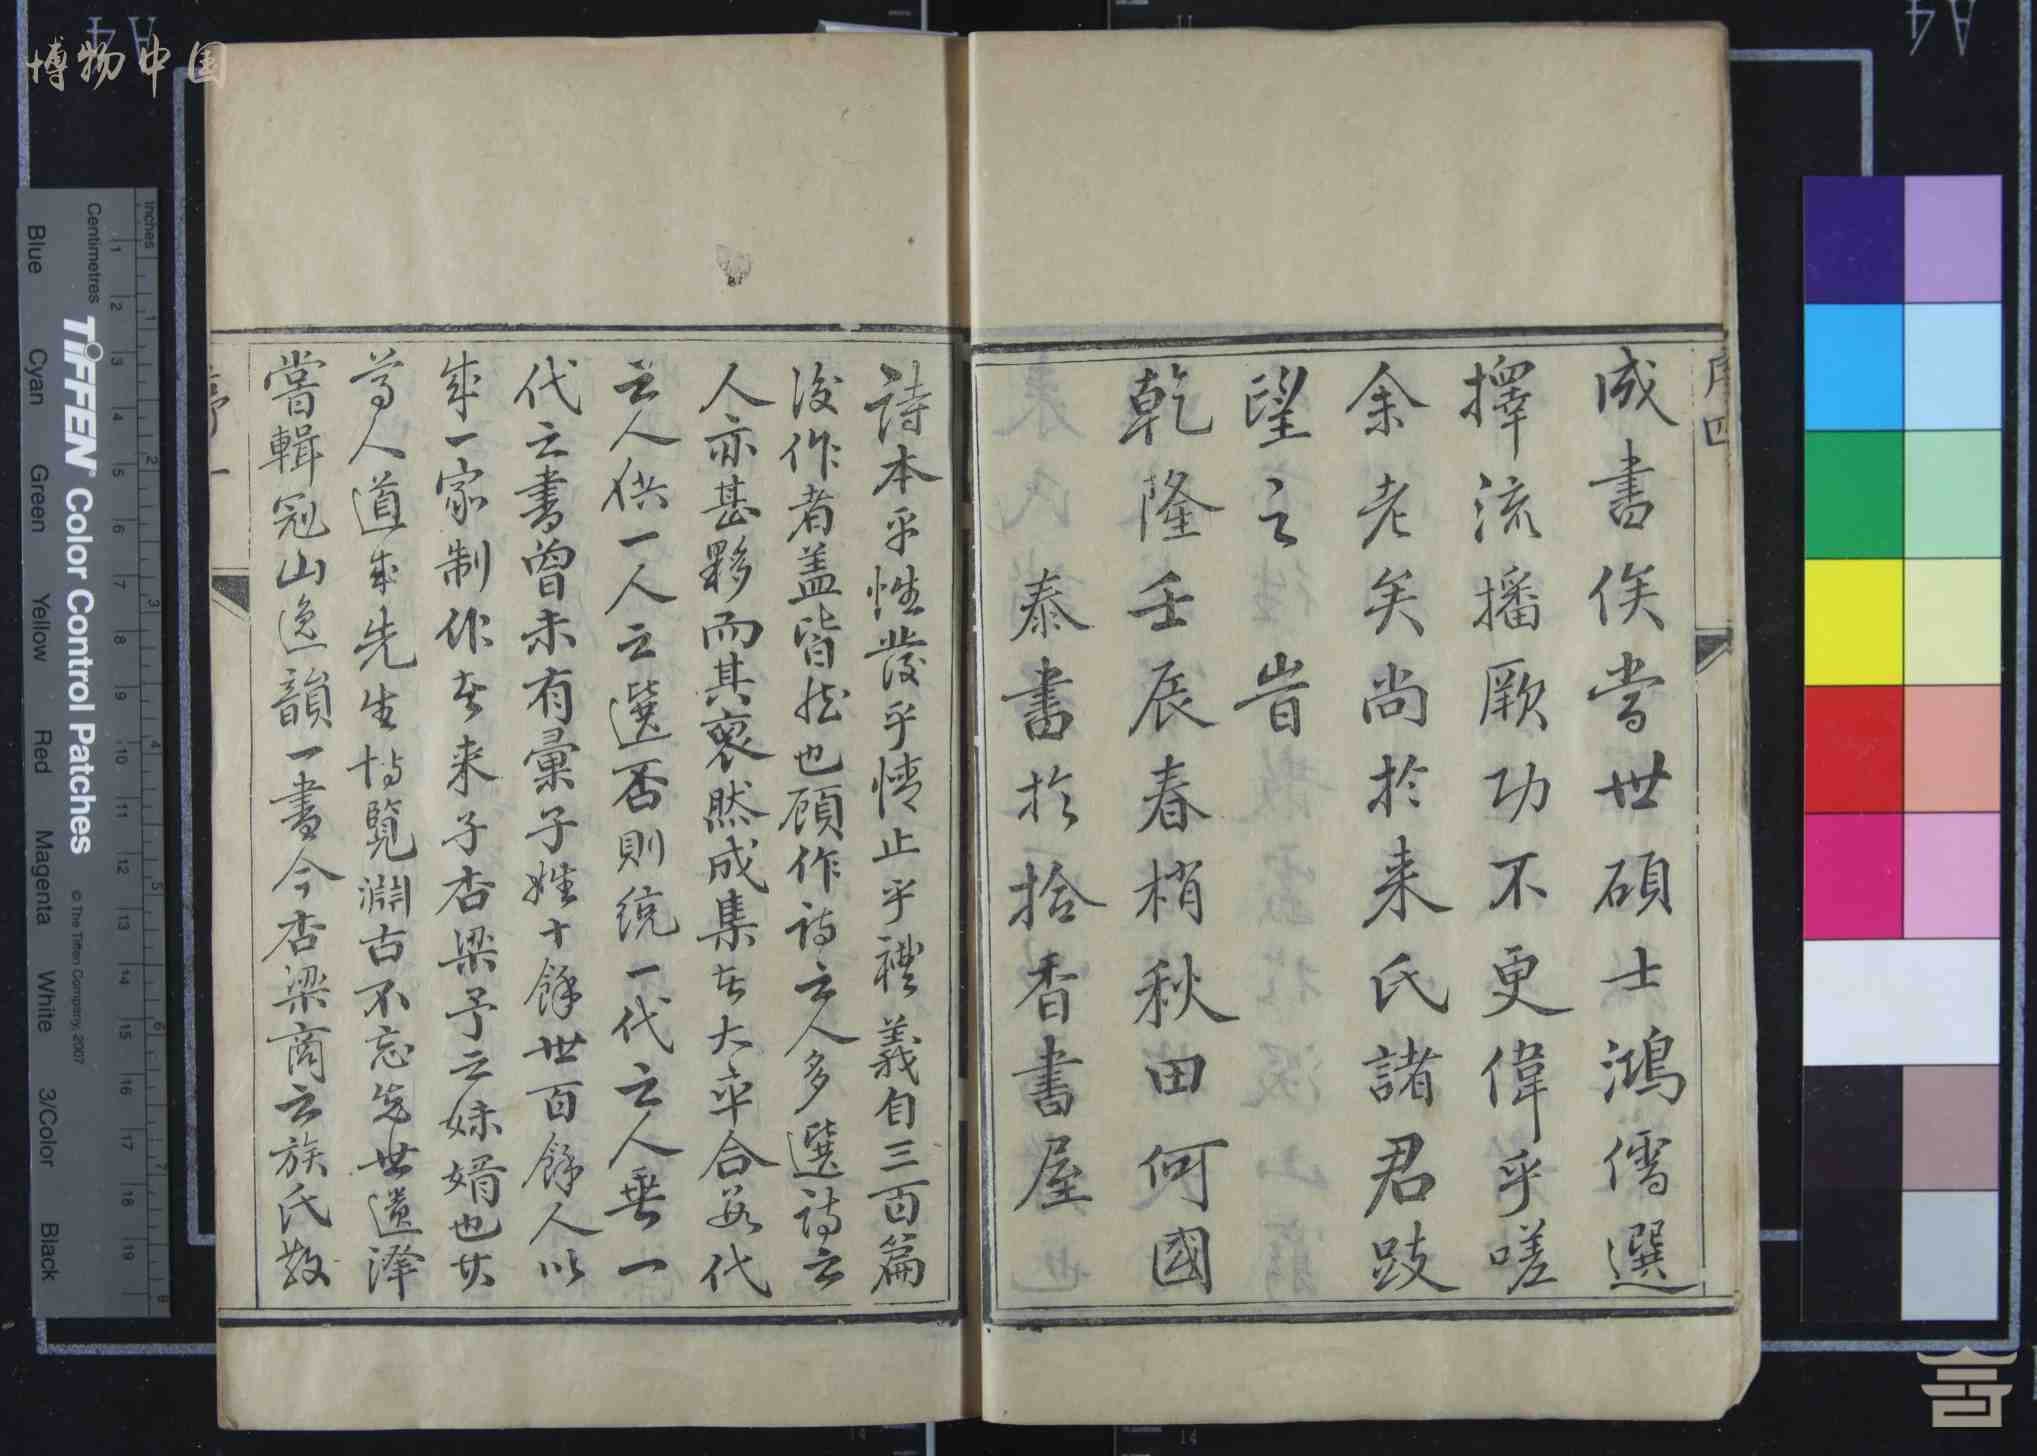 博物中国
序四
成書俟當世碩士鴻儒選
擇流播厥功不更偉乎嗟
余老矣尚於来氏諸君跂
望之 旹
乾隆壬辰春梢秋田何國
泰書於拾香書屋
詩本乎性發乎情止乎禮義自三百篇
後作者盖皆然也顧作詩之人多選詩之
人亦甚夥而其裒然成集者大率合數代
之人供一人之選否則統一代之人垂一
代之書曾未有彙子姓十餘世百餘人以
成一家制作者来子杏梁予之妹婿也其
尊人道成先生博覽淵古不忘先世遺澤
嘗輯冠山逸韻一書今杏梁商之族氏敬
序 一
Inches
Centimetres
TIFFEN Color Control Patches
© The Tiffen Company, 2007
Blue
Cyan
Green
Yellow
Red
Magenta
White
3/Color
Black
1 2 3 4 5 6 7 8 9 10 11 12 13 14 15 16 17 18 19
1 2 3 4 5 6 7 8
A4
A4
14
14